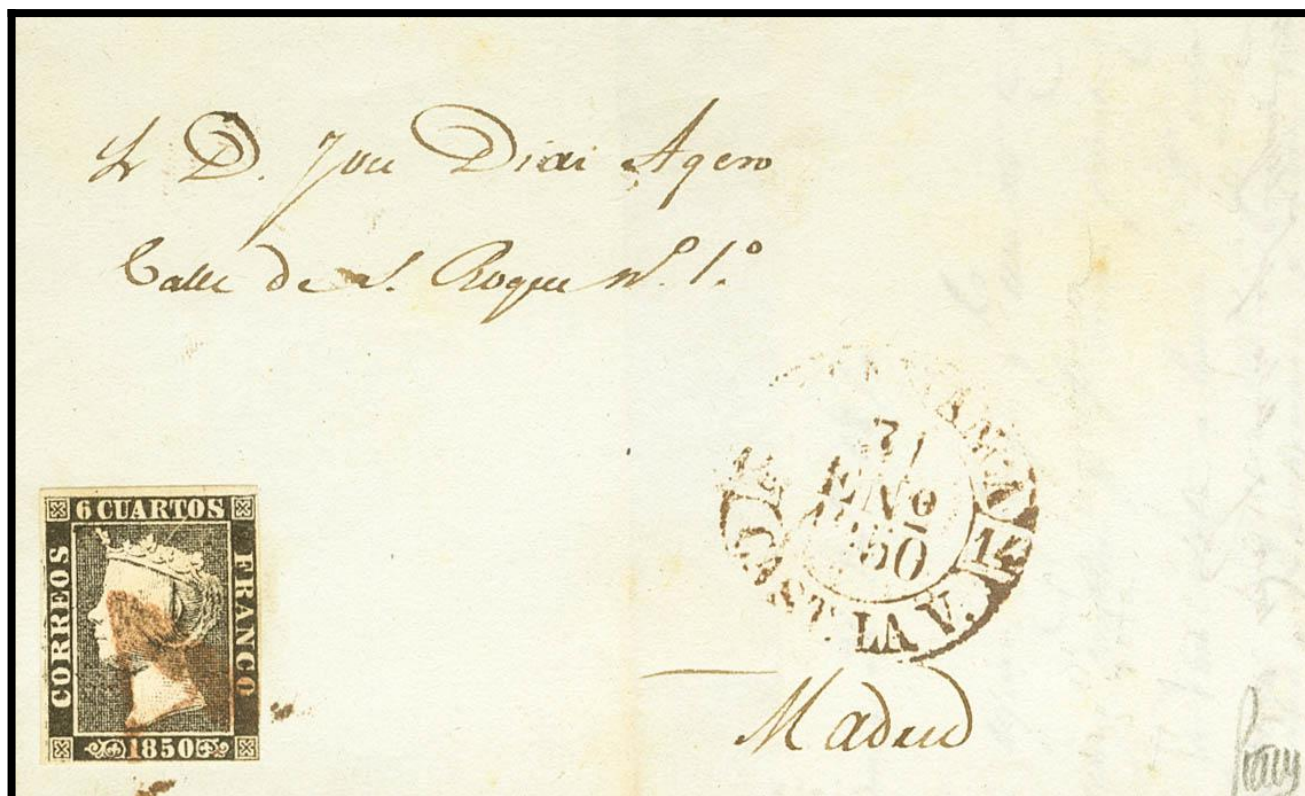 Sr D. Jose Diaz Agero
Calle de S. Roque Nº. 1º
6 CUARTOS
CORREOS
FRANCO
1850
ENO
LA V.
Madrid